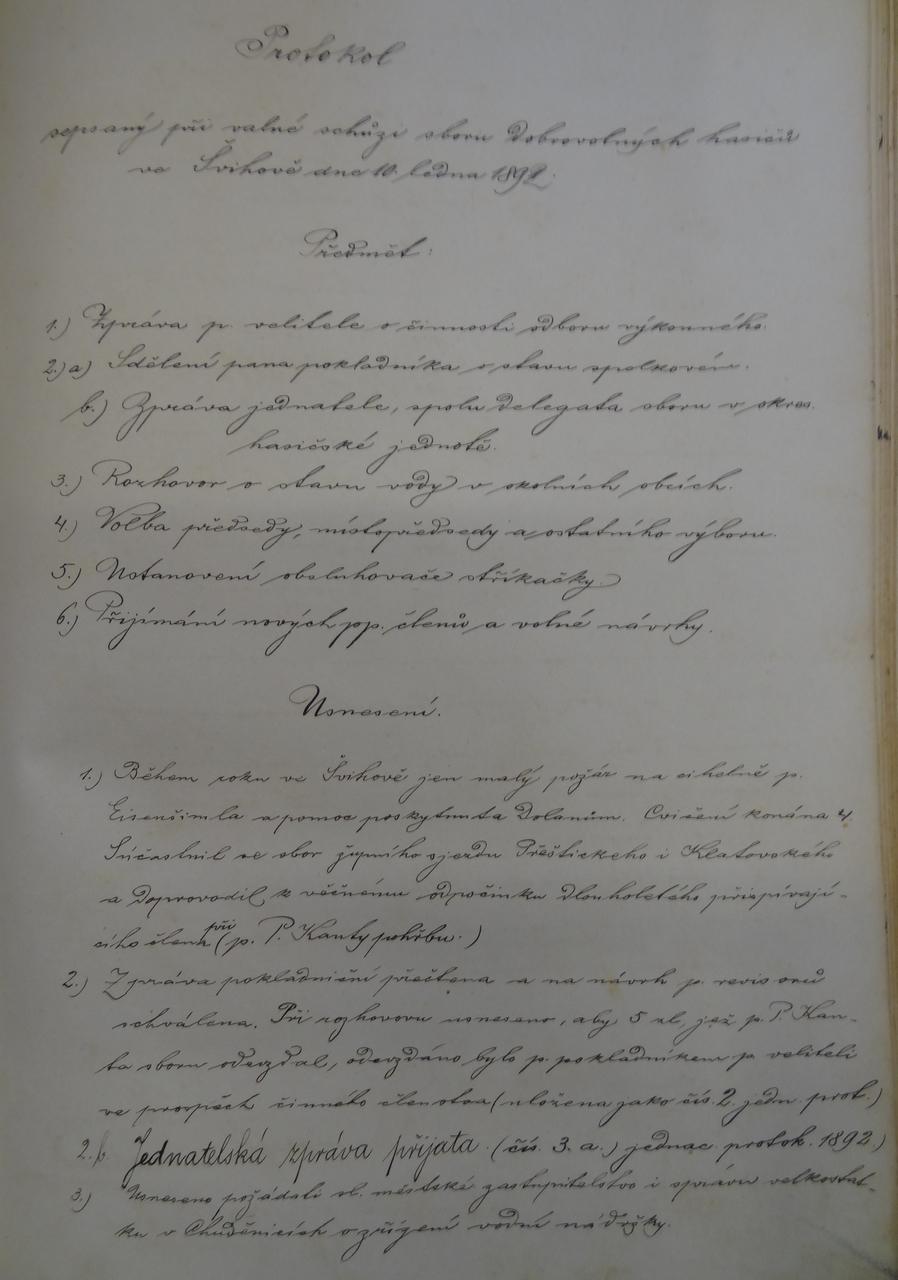 Protokol
sepsaný při valné schůzi sboru dobrovolných hasičů
ve Švihově dne 10. ledna 1892.
Předmět:
1.) Zpráva p. velitele o činnosti odboru výkonného.
2.) a) Sdělení pana pokladníka o stavu spolkovém.
b.) Zpráva jednatele, spolu delegata sboru v okres.
hasičské jednotě.
3.) Rozhovor o stavu vody v okolních obcích.
4.) Volba předsedy, místopředsedy a ostatního výboru.
5.) Ustanovení obsluhovače stříkačky.
6.) Přijímání nových pp. členů a volné návrhy.
Usnesení.
1.) Během roku ve Švihově jen malý požár na cihelně p.
Eisenšimla a pomoc poskytnuta Dolanům. Cvičení konána 4.
Súčastnil se sbor župního sjezdu Přeštického i Klatovského
a doprovodil k věčnému odpočinku dlouholetého přispívají-
cího člena při (p. P. Kanty pohřbu.)
2.) Zpráva pokladniční přečtena a na návrh p. revisorů
schválena. Při rozhovoru usneseno, aby 5 zl, jež p. P. Kan-
ta sboru odevzdal, odevzdáno bylo p. pokladníkem p. veliteli
ve prospěch činného členstva (uložena jako čís. 2. jedn. prot.)
2. b. Jednatelská zpráva přijata. (čís. 3. a.) jednac protok. 1892)
3.) Usneseno požádati sl. městské zastupitelstvo i správu velkostat-
ku v Chuděnicích o zřízení vodní nádržky.